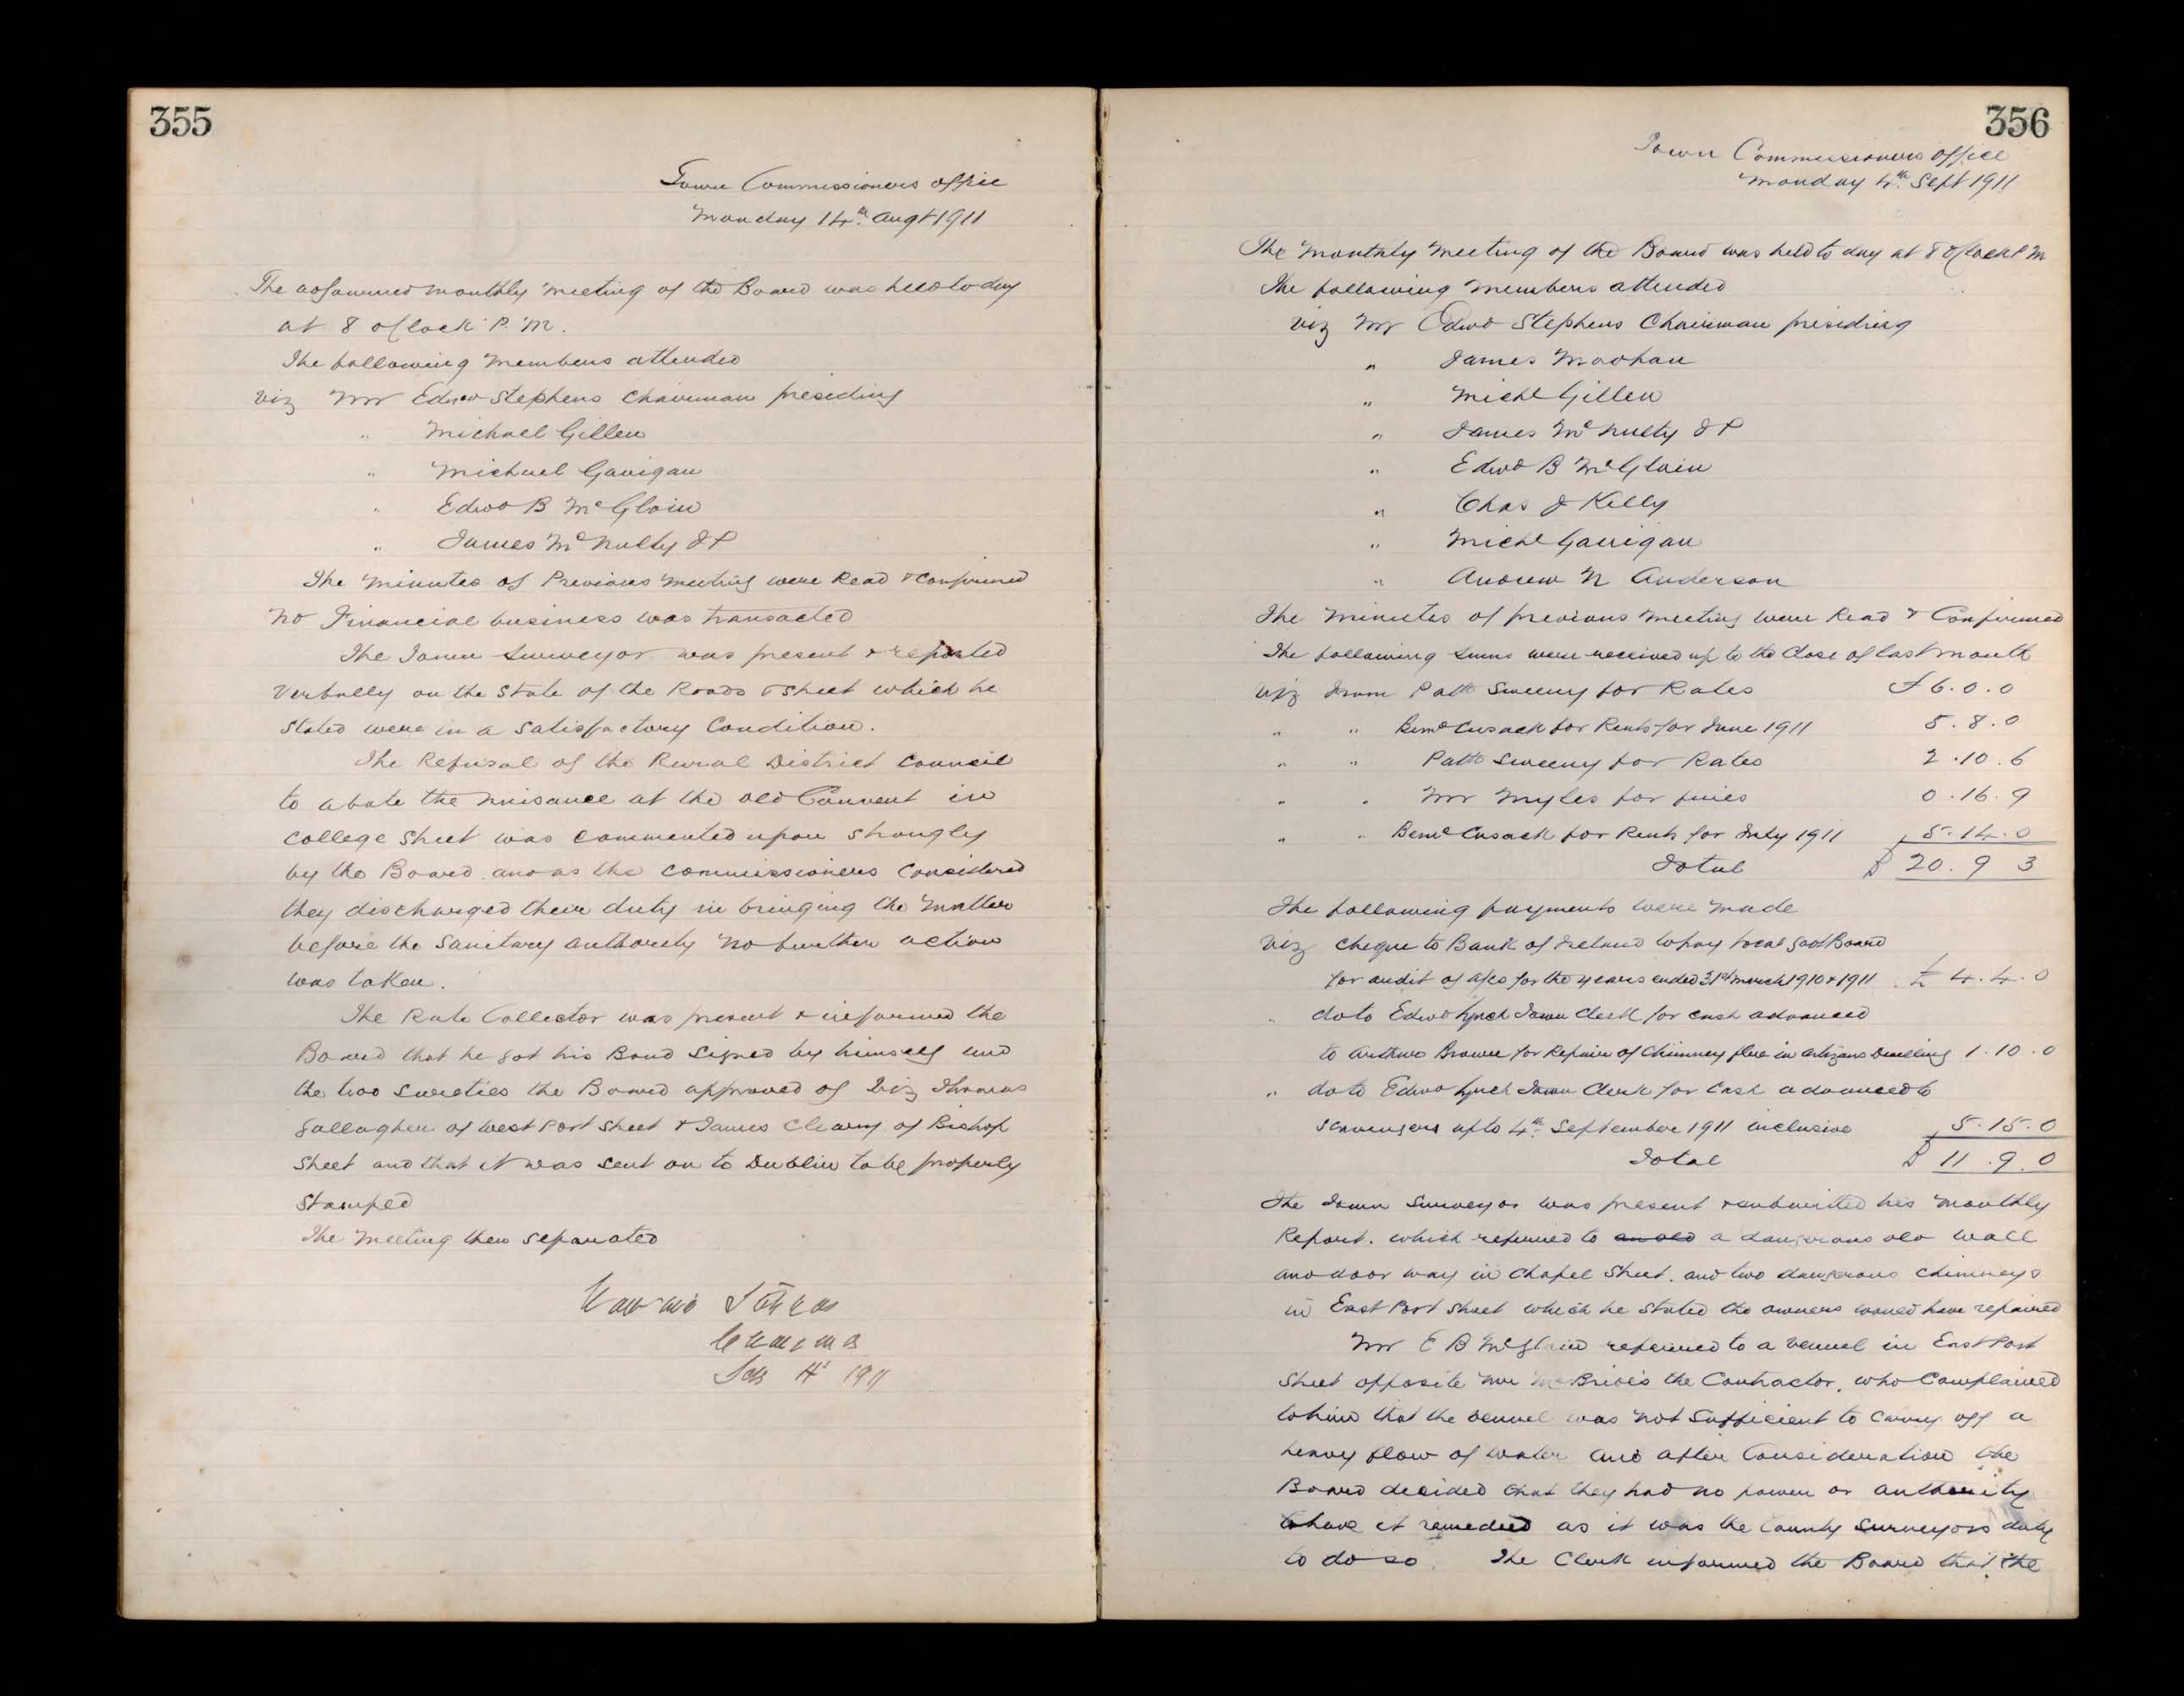 355
Town Commissioners office
Monday 14th. Augt 1911
The adjourned monthly meeting of the Board was held to day
at 8 oClock P. M.
The following members attended
viz Mr Edwd Stephens Chairman presiding
" Michael Gillen
" Michael Gavigan
" Edwd B McGloin
" James McNulty J P
The minutes of Previous meeting were Read & Confirmed
No Financial business was transacted
The Town Surveyor was present & reported
Verbally on the State of the Roads & Street which he
Stated were in a Satisfactory Condition.
The Refusal of the Rural District Council
to abate the nuisance at the old Convent in
College Street was commented upon strongly
by the Board and as the commissioners considered
they discharged their duty in bringing the matter
before the Sanitary authority no further action
was taken.
The Rate Collector was present & informed the
Board that he got his Bond signed by himself and
the two sureties the Board approved of Viz Thomas
Gallagher of West Port Street & James Cleary of Bishop
Street and that it was sent on to Dublin to be properly
Stamped
The Meeting then separated
1911
356
Town Commissioners office
Monday 4th. Sept 1911
The Monthly Meeting of the Board was held to day at 8 oClock P M
The following members attended
viz Mr Edwd Stephens Chairman presiding
" James Moohan
" Michl Gillen
" James McNulty J P
" Edwd B McGloin
" Chas J Kelly
" Michl Gavigan
" Andrew N Anderson
The minutes of previous meeting were Read & Confirmed
The following sums were received up to the Close of last month
viz From Patk Sweeny for Rates £6.0.0
" " Bernd Cusack for Rents for June 1911 5.8.0
" " Patk Sweeny for Rates 2.10.6
" " Mr Myles for fines 0.16.9
" " Bernd Cusack for Rents for July 1911 5.14.0
Total £ 20.9 3
The following payments were made
Viz cheque to Bank of Ireland to pay Local Govt Board
for audit of a/cs for the years ended 31st March 1910 & 1911 £ 4.4.0
" do to Edwd Lynch Town Clerk for cash advanced
to Browne for Repair of Chimney flue in Artizans Dwelling 1.10.0
" do to Edwd Lynch Town Clerk for Cash advanced to
scavengers up to 4th September 1911 inclusive 5.15.0
Total £ 11.9.0
The Town Surveyor was present & submitted his monthly
Report. which referred to an old a dangerous old wall
and door way in Chapel Street. and two dangerous chimneys
in East Port Street which he stated the owners would have repaired
Mr E B McGloin referred to a vennel in East Port
Street opposite Mr McBride's the Contractor, who Complained
to him that the vennel was not sufficient to carry off a
heavy flow of water and after Consideration the
Board decided that they had no power or authority
to have it remedied as it was the County Surveyors duty
to do so. The Clerk informed the Board that the